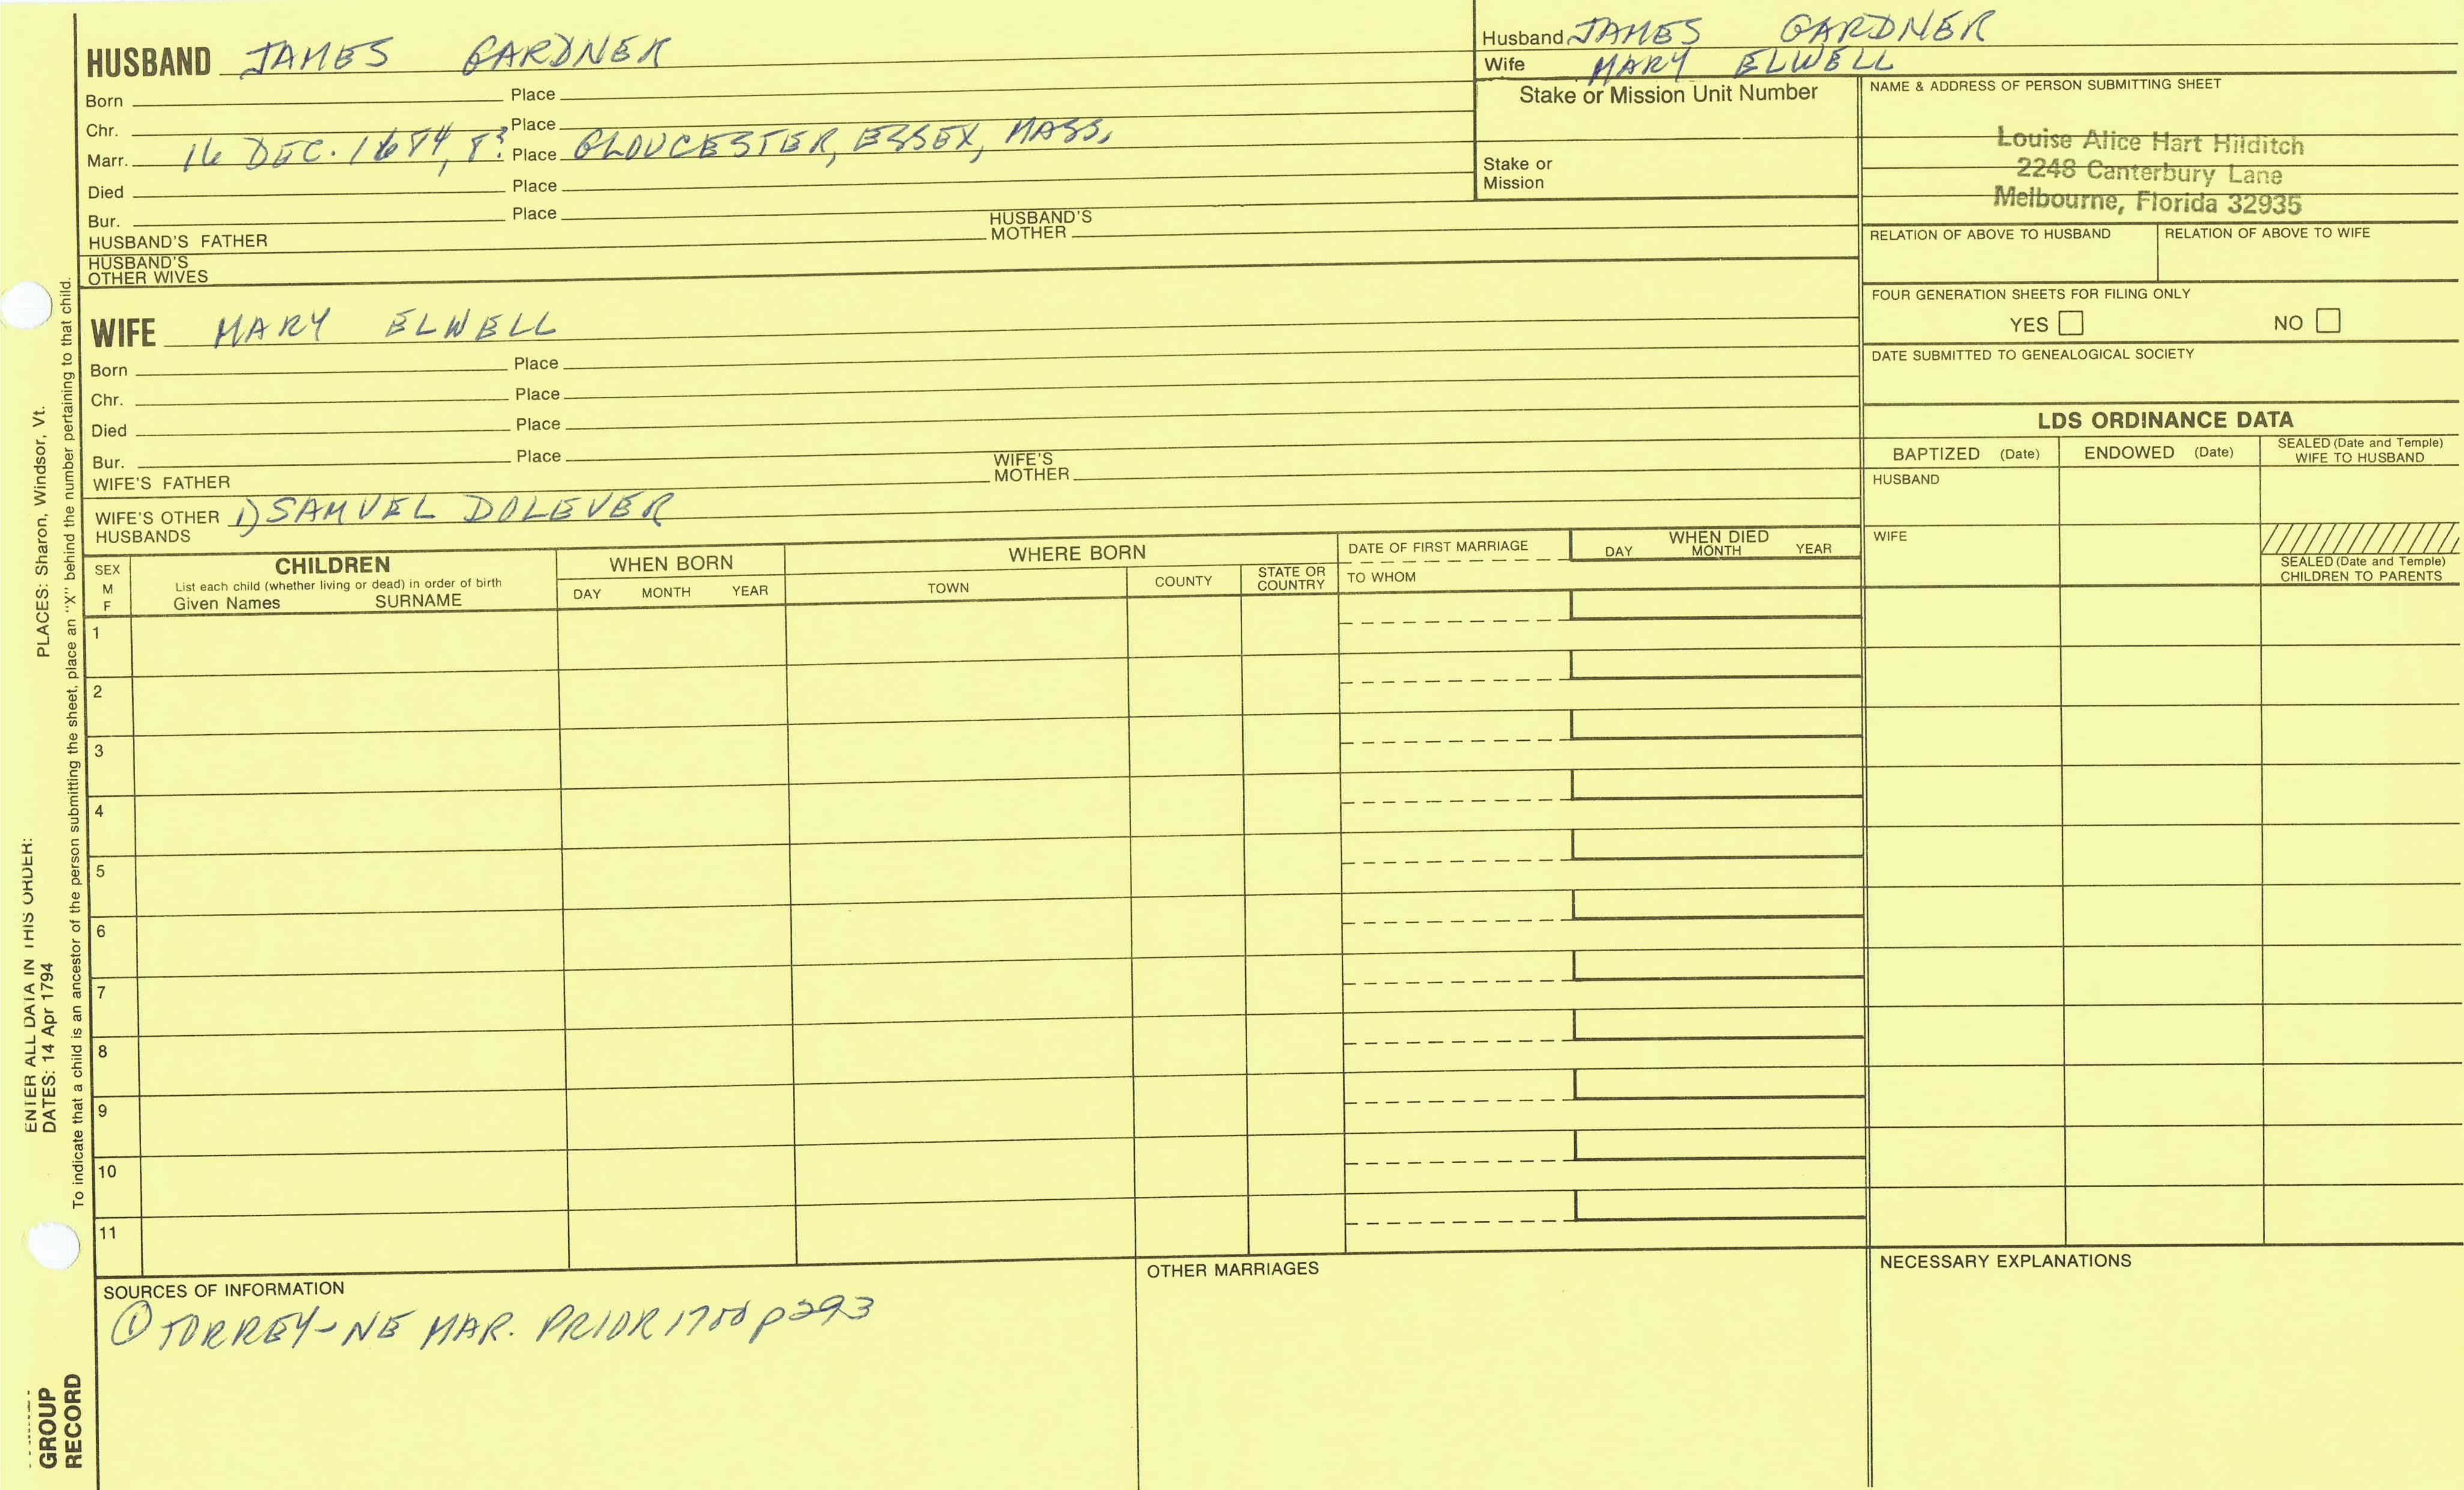 HUSBAND JAMES GARDNER
Born Place
Chr. Place
Marr. 16 DEC. 1684, 5? Place GLOUCESTER, ESSEX, MASS.
Died Place
Bur. Place
HUSBAND'S FATHER HUSBAND'S MOTHER
HUSBAND'S OTHER WIVES
Husband JAMES GARDNER
Wife MARY ELWELL
Stake or Mission Unit Number
Stake or Mission
NAME & ADDRESS OF PERSON SUBMITTING SHEET
Louise Alice Hart Hilditch
2248 Canterbury Lane
Melbourne, Florida 32935
RELATION OF ABOVE TO HUSBAND RELATION OF ABOVE TO WIFE
FOUR GENERATION SHEETS FOR FILING ONLY
YES NO
DATE SUBMITTED TO GENEALOGICAL SOCIETY
WIFE MARY ELWELL
Born Place
Chr. Place
Died Place
Bur. Place
WIFE'S FATHER WIFE'S MOTHER
WIFE'S OTHER HUSBANDS 1) SAMUEL DOLEVER
LDS ORDINANCE DATA
BAPTIZED (Date) ENDOWED (Date) SEALED (Date and Temple) WIFE TO HUSBAND
HUSBAND
WIFE
SEALED (Date and Temple) CHILDREN TO PARENTS
SEX M F
CHILDREN
List each child (whether living or dead) in order of birth
Given Names SURNAME
WHEN BORN
DAY MONTH YEAR
WHERE BORN
TOWN COUNTY STATE OR COUNTRY
DATE OF FIRST MARRIAGE
TO WHOM
WHEN DIED
DAY MONTH YEAR
1
2
3
4
5
6
7
8
9
10
11
SOURCES OF INFORMATION
① TORREY - NE MAR. PRIOR 1700 p293
OTHER MARRIAGES
NECESSARY EXPLANATIONS
ENTER ALL DATA IN THIS ORDER:
DATES: 14 Apr 1794 PLACES: Sharon, Windsor, Vt.
To indicate that a child is an ancestor of the person submitting the sheet, place an "X" behind the number pertaining to that child.
GROUP
RECORD